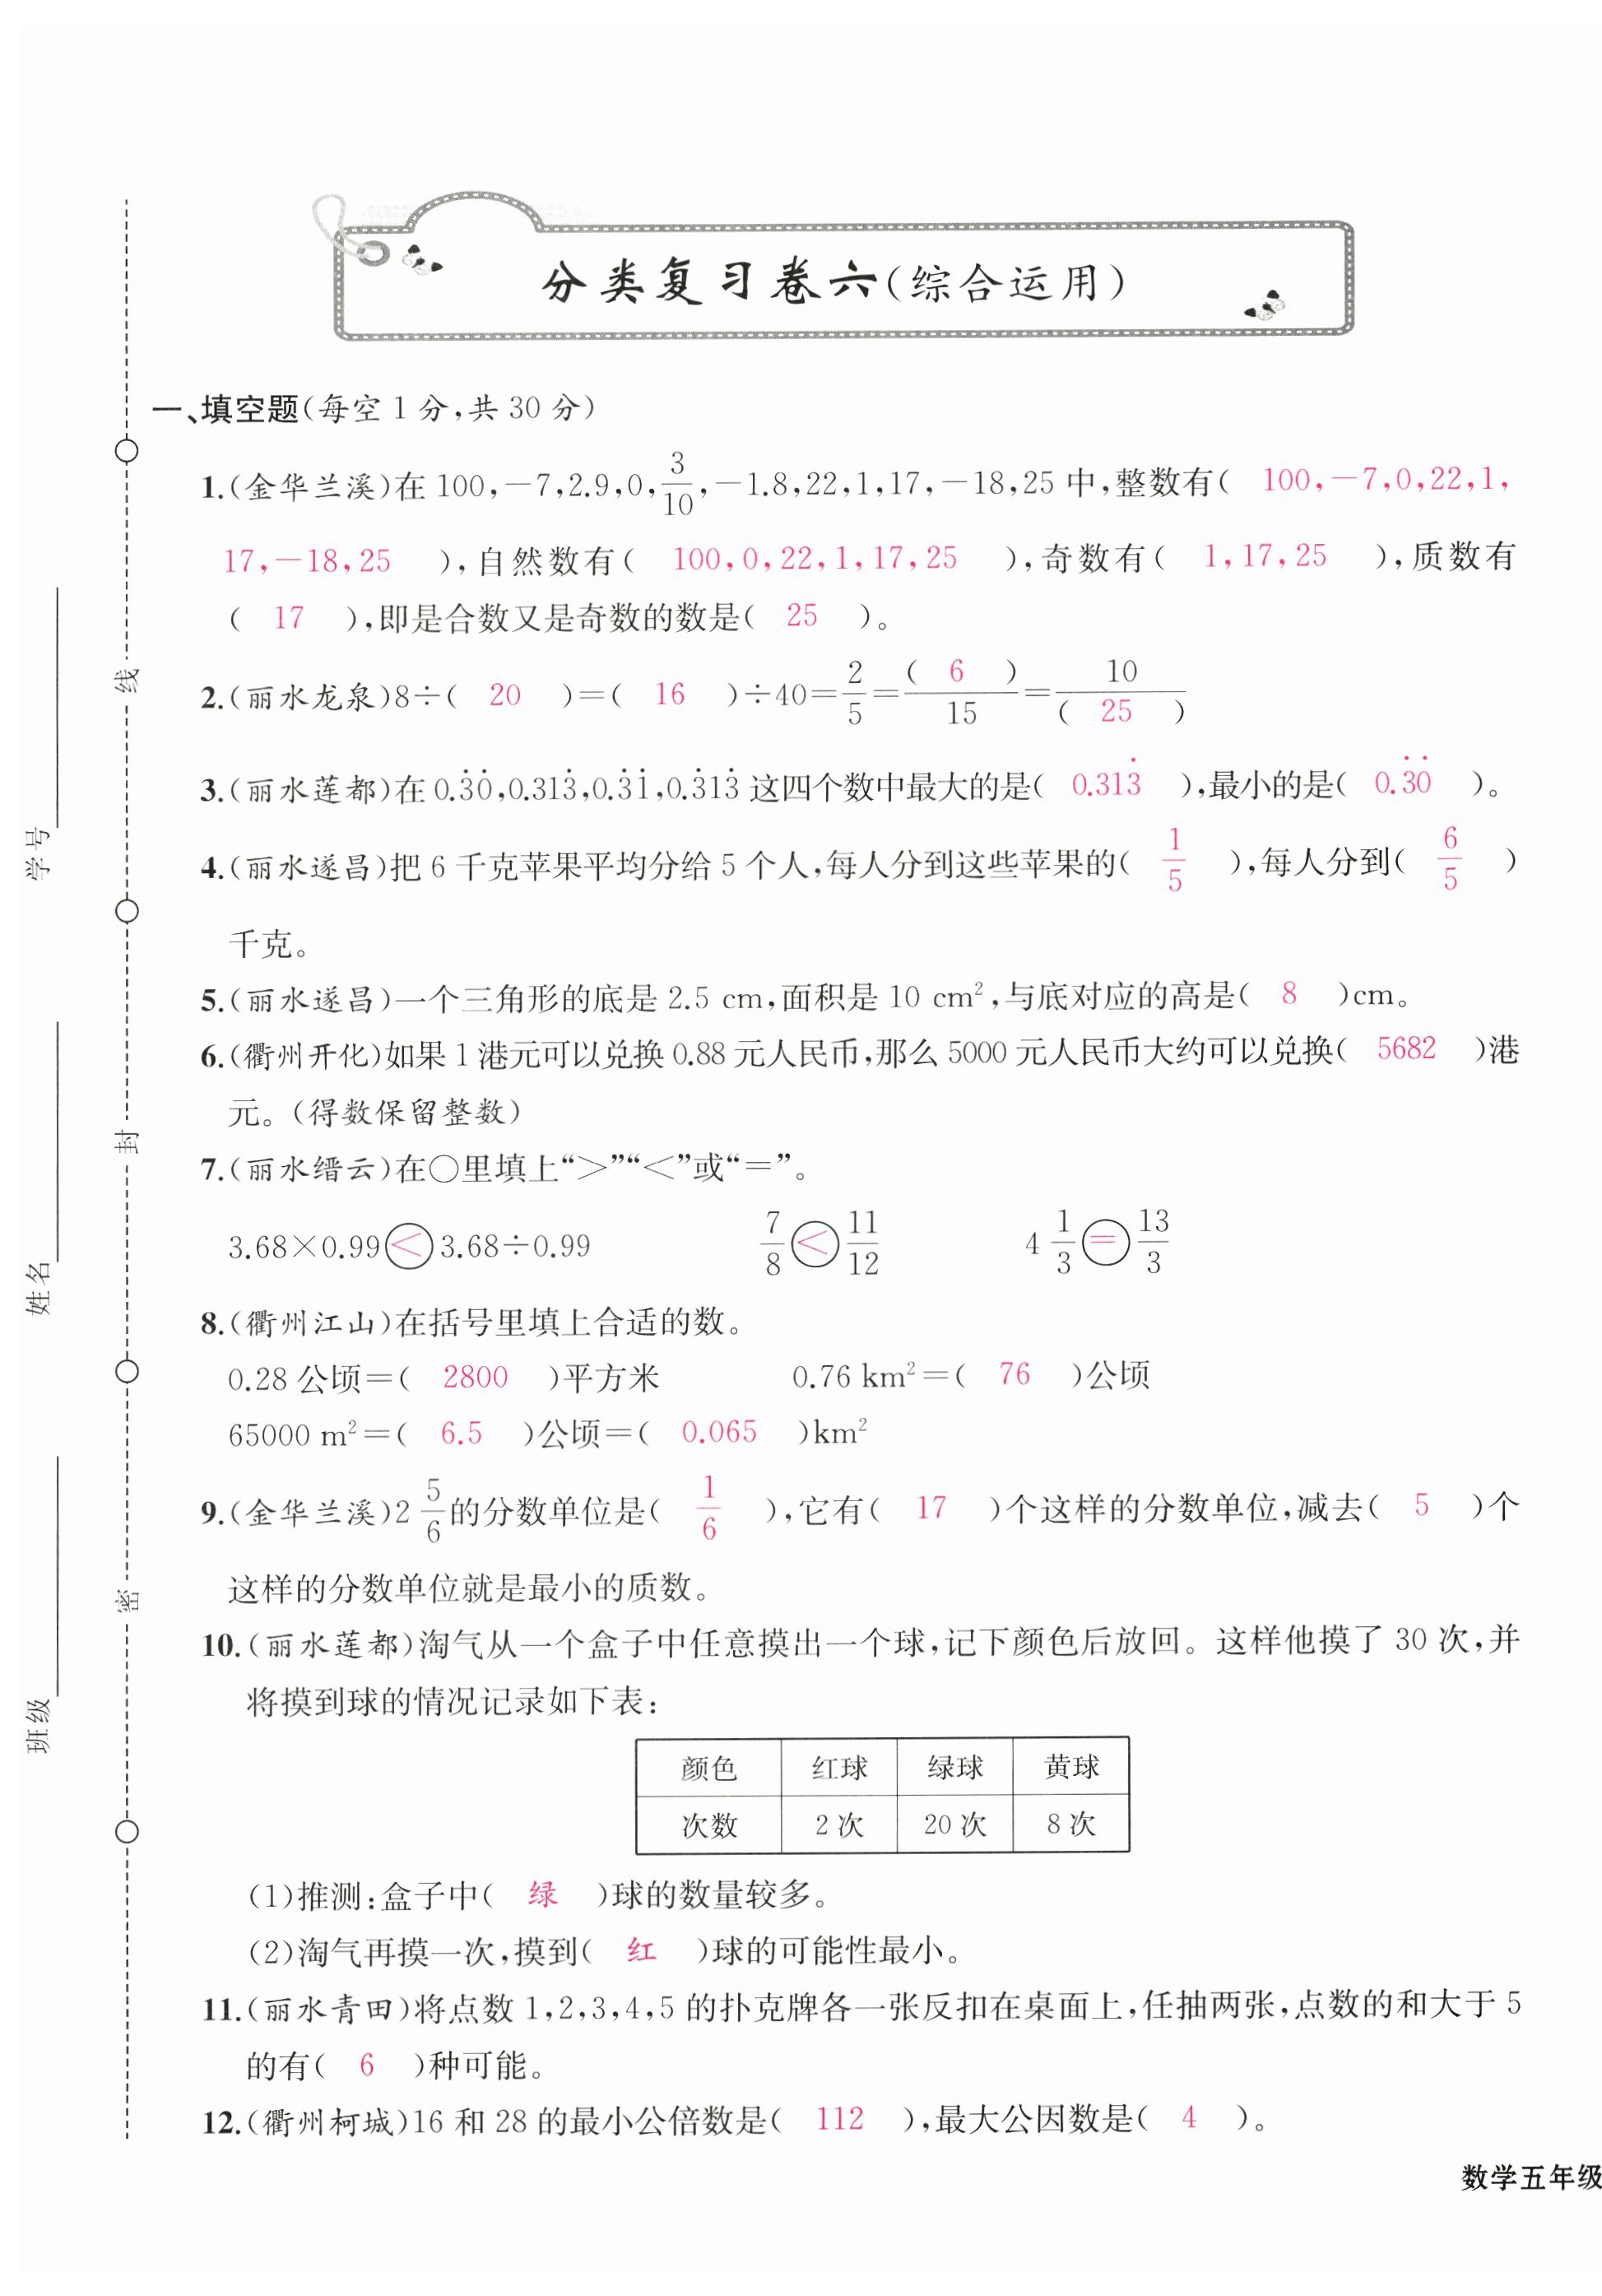 分类复习卷六(综合运用)
一、填空题(每空 1 分,共 30 分)
1.(金华兰溪)在 100,-7,2.9,0,3/10,-1.8,22,1,17,-18,25 中,整数有( 100,-7,0,22,1,
17,-18,25 ),自然数有( 100,0,22,1,17,25 ),奇数有( 1,17,25 ),质数有
( 17 ),即是合数又是奇数的数是( 25 )。
2.(丽水龙泉)8÷( 20 )=( 16 )÷40=2/5=( 6 )/15=10/( 25 )
3.(丽水莲都)在 0.3̇0̇,0.313̇,0.3̇1̇,0.3̇13̇ 这四个数中最大的是( 0.313̇ ),最小的是( 0.3̇0̇ )。
4.(丽水遂昌)把 6 千克苹果平均分给 5 个人,每人分到这些苹果的( 1/5 ),每人分到( 6/5 )
千克。
5.(丽水遂昌)一个三角形的底是 2.5 cm,面积是 10 cm²,与底对应的高是( 8 )cm。
6.(衢州开化)如果 1 港元可以兑换 0.88 元人民币,那么 5000 元人民币大约可以兑换( 5682 )港
元。(得数保留整数)
7.(丽水缙云)在○里填上“>”“<”或“=”。
3.68×0.99<3.68÷0.99 7/8<11/12 4 1/3=13/3
8.(衢州江山)在括号里填上合适的数。
0.28 公顷=( 2800 )平方米 0.76 km²=( 76 )公顷
65000 m²=( 6.5 )公顷=( 0.065 )km²
9.(金华兰溪)2 5/6的分数单位是( 1/6 ),它有( 17 )个这样的分数单位,减去( 5 )个
这样的分数单位就是最小的质数。
10.(丽水莲都)淘气从一个盒子中任意摸出一个球,记下颜色后放回。这样他摸了 30 次,并
将摸到球的情况记录如下表:
颜色 红球 绿球 黄球
次数 2 次 20 次 8 次
(1)推测:盒子中( 绿 )球的数量较多。
(2)淘气再摸一次,摸到( 红 )球的可能性最小。
11.(丽水青田)将点数 1,2,3,4,5 的扑克牌各一张反扣在桌面上,任抽两张,点数的和大于 5
的有( 6 )种可能。
12.(衢州柯城)16 和 28 的最小公倍数是( 112 ),最大公因数是( 4 )。
数学五年级
学号
姓名
班级
线
封
密